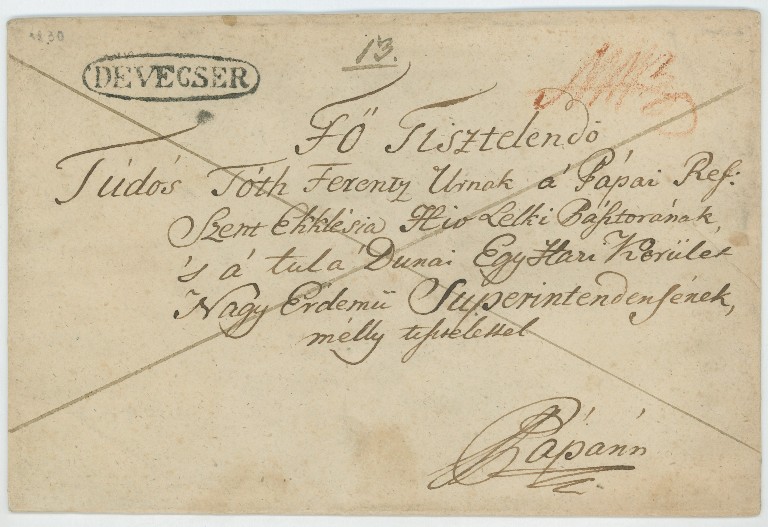 1830
DEVECSER
13.
Fő Tisztelendő
Túdós Tóth Ferentz Urnak á Pápai Ref:
Szent Ekklésia Hiv Lelki Pásztorának
's á tul á Dunai Egy Házi Kerület
Nagy Erdemű Superintendensének,
mélly tisztelettel
Pápánn